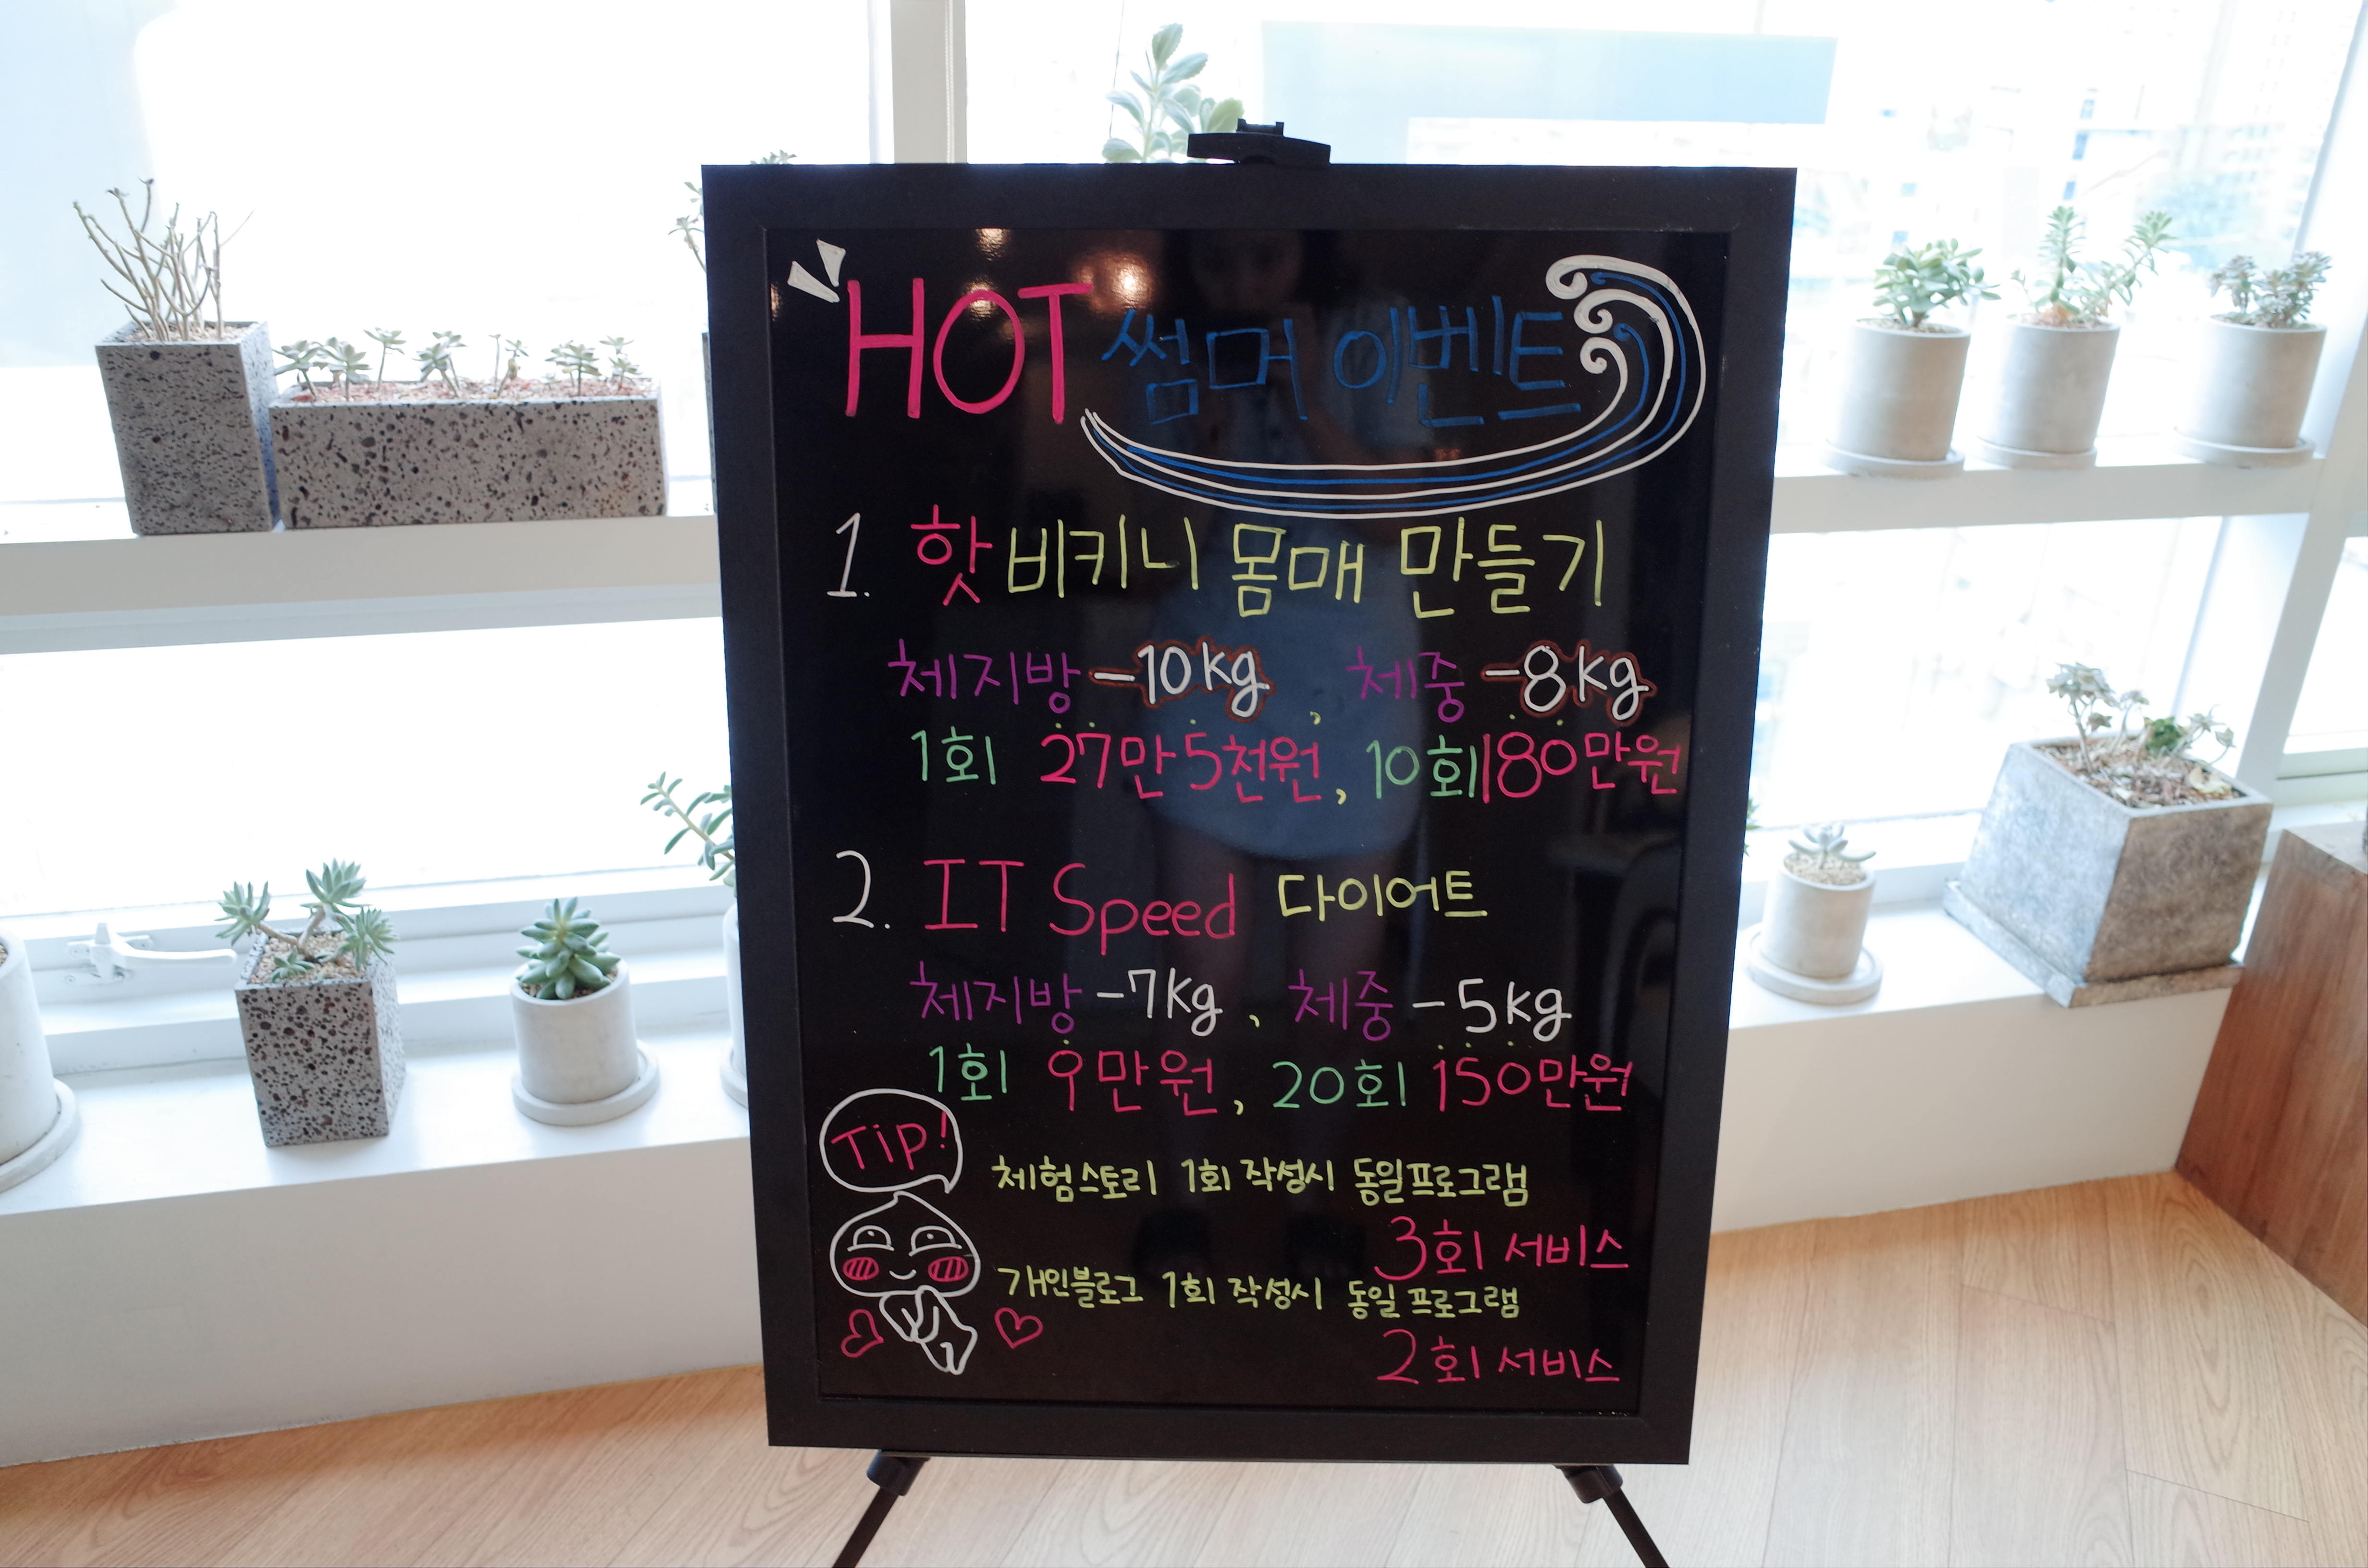 HOT 썸머 이벤트
1. 핫 비키니 몸매 만들기
체지방 -10kg , 체중 -8kg
1회 27만 5천원, 10회 180만원
2. IT Speed 다이어트
체지방 -7kg , 체중 -5kg
1회 9만원, 20회 150만원
Tip!
체험스토리 1회 작성시 동일프로그램
3회 서비스
개인블로그 1회 작성시 동일 프로그램
2회 서비스